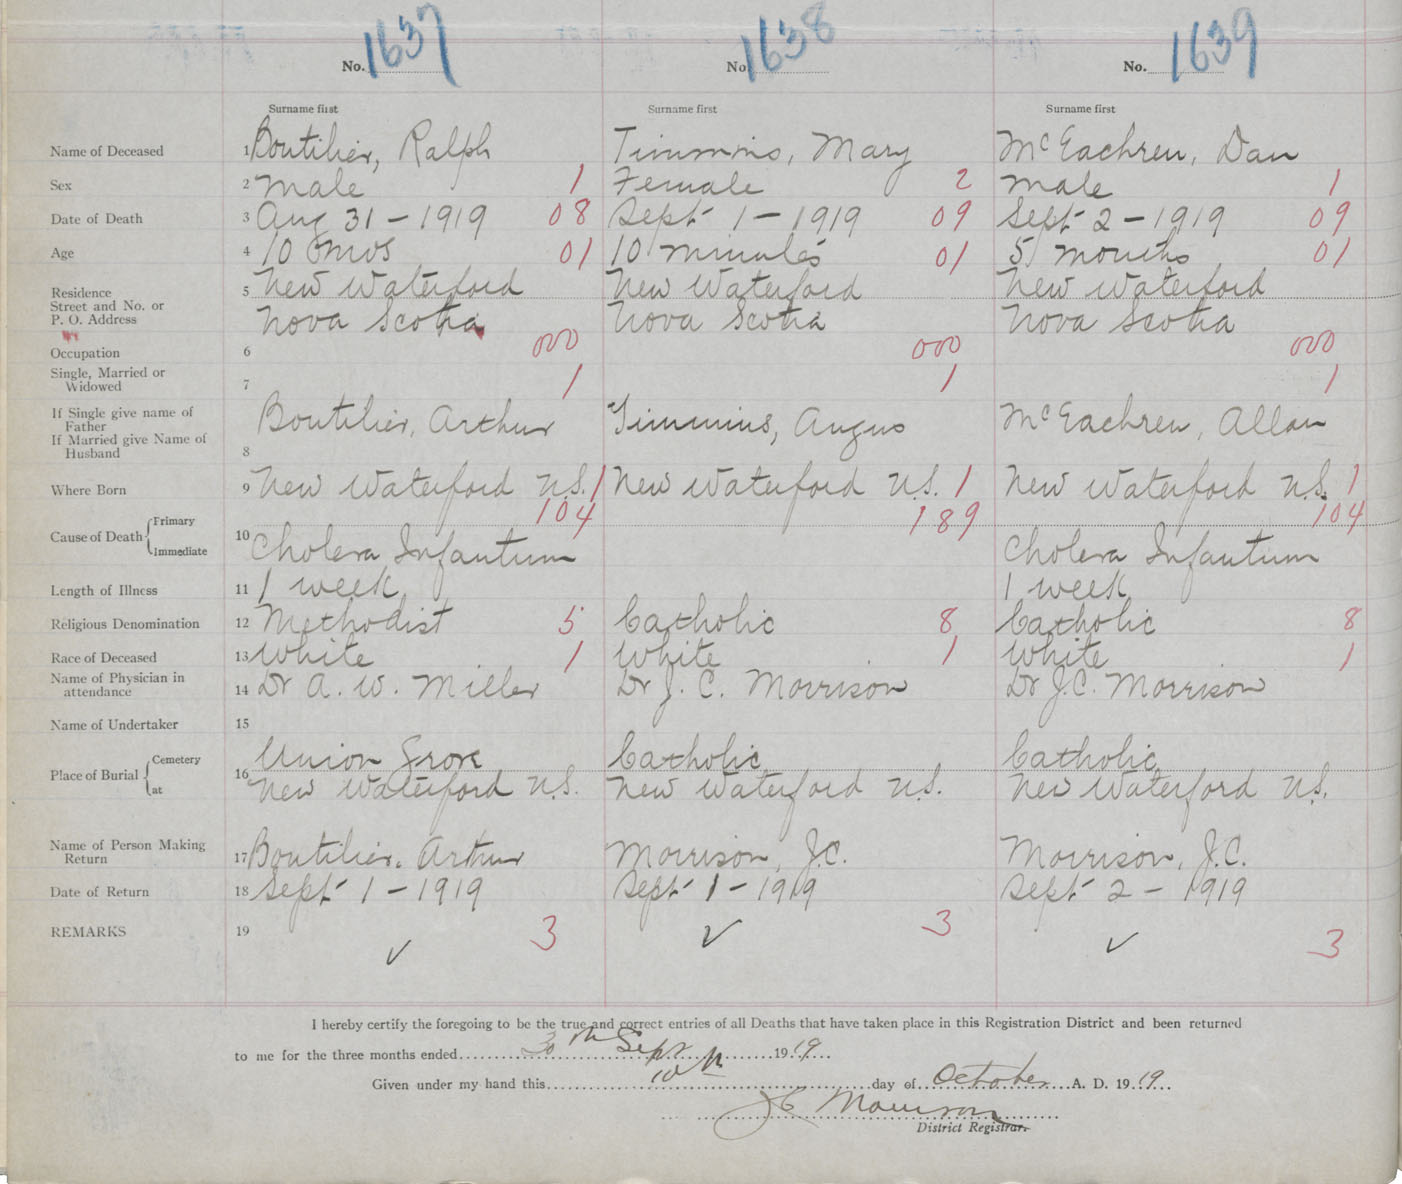 No. 1637 No. 1638 No. 1639
Surname first Surname first Surname first
Name of Deceased 1 Boutilier, Ralph Timmins, Mary McEachren, Dan
Sex 2 Male 1 Female 2 Male 1
Date of Death 3 Aug 31 - 1919 08 Sept 1 - 1919 09 Sept 2 - 1919 09
Age 4 10 mos 01 10 minutes 01 5 months 01
Residence 5 New Waterford New Waterford New Waterford
Street and No. or
P. O. Address Nova Scotia Nova Scotia Nova Scotia
Occupation 6 000 000 000
Single, Married or
Widowed 7 1 1 1
If Single give name of
Father Boutilier, Arthur Timmins, Angus McEachren, Allan
If Married give Name of
Husband 8
Where Born 9 New Waterford N.S. 1 New Waterford N.S. 1 New Waterford N.S. 1
Cause of Death { Primary 104 189 104
Immediate 10 Cholera Infantum Cholera Infantum
Length of Illness 11 1 week 1 week
Religious Denomination 12 Methodist 5 Catholic 8 Catholic 8
Race of Deceased 13 White 1 White 1 White 1
Name of Physician in
attendance 14 Dr A. W. Miller Dr J. C. Morrison Dr J.C. Morrison
Name of Undertaker 15
Place of Burial { Cemetery 16 Union Grove Catholic Catholic
at New Waterford N.S. New Waterford N.S. New Waterford N.S.
Name of Person Making
Return 17 Boutilier, Arthur Morrison, J.C. Morrison, J.C.
Date of Return 18 Sept 1 - 1919 Sept 1 - 1919 Sept 2 - 1919
REMARKS 19 ✓ 3 ✓ 3 ✓ 3
I hereby certify the foregoing to be the true and correct entries of all Deaths that have taken place in this Registration District and been returned
to me for the three months ended 30th Sept 1919
Given under my hand this 10th day of October A. D. 1919
J C Morrison
District Registrar.